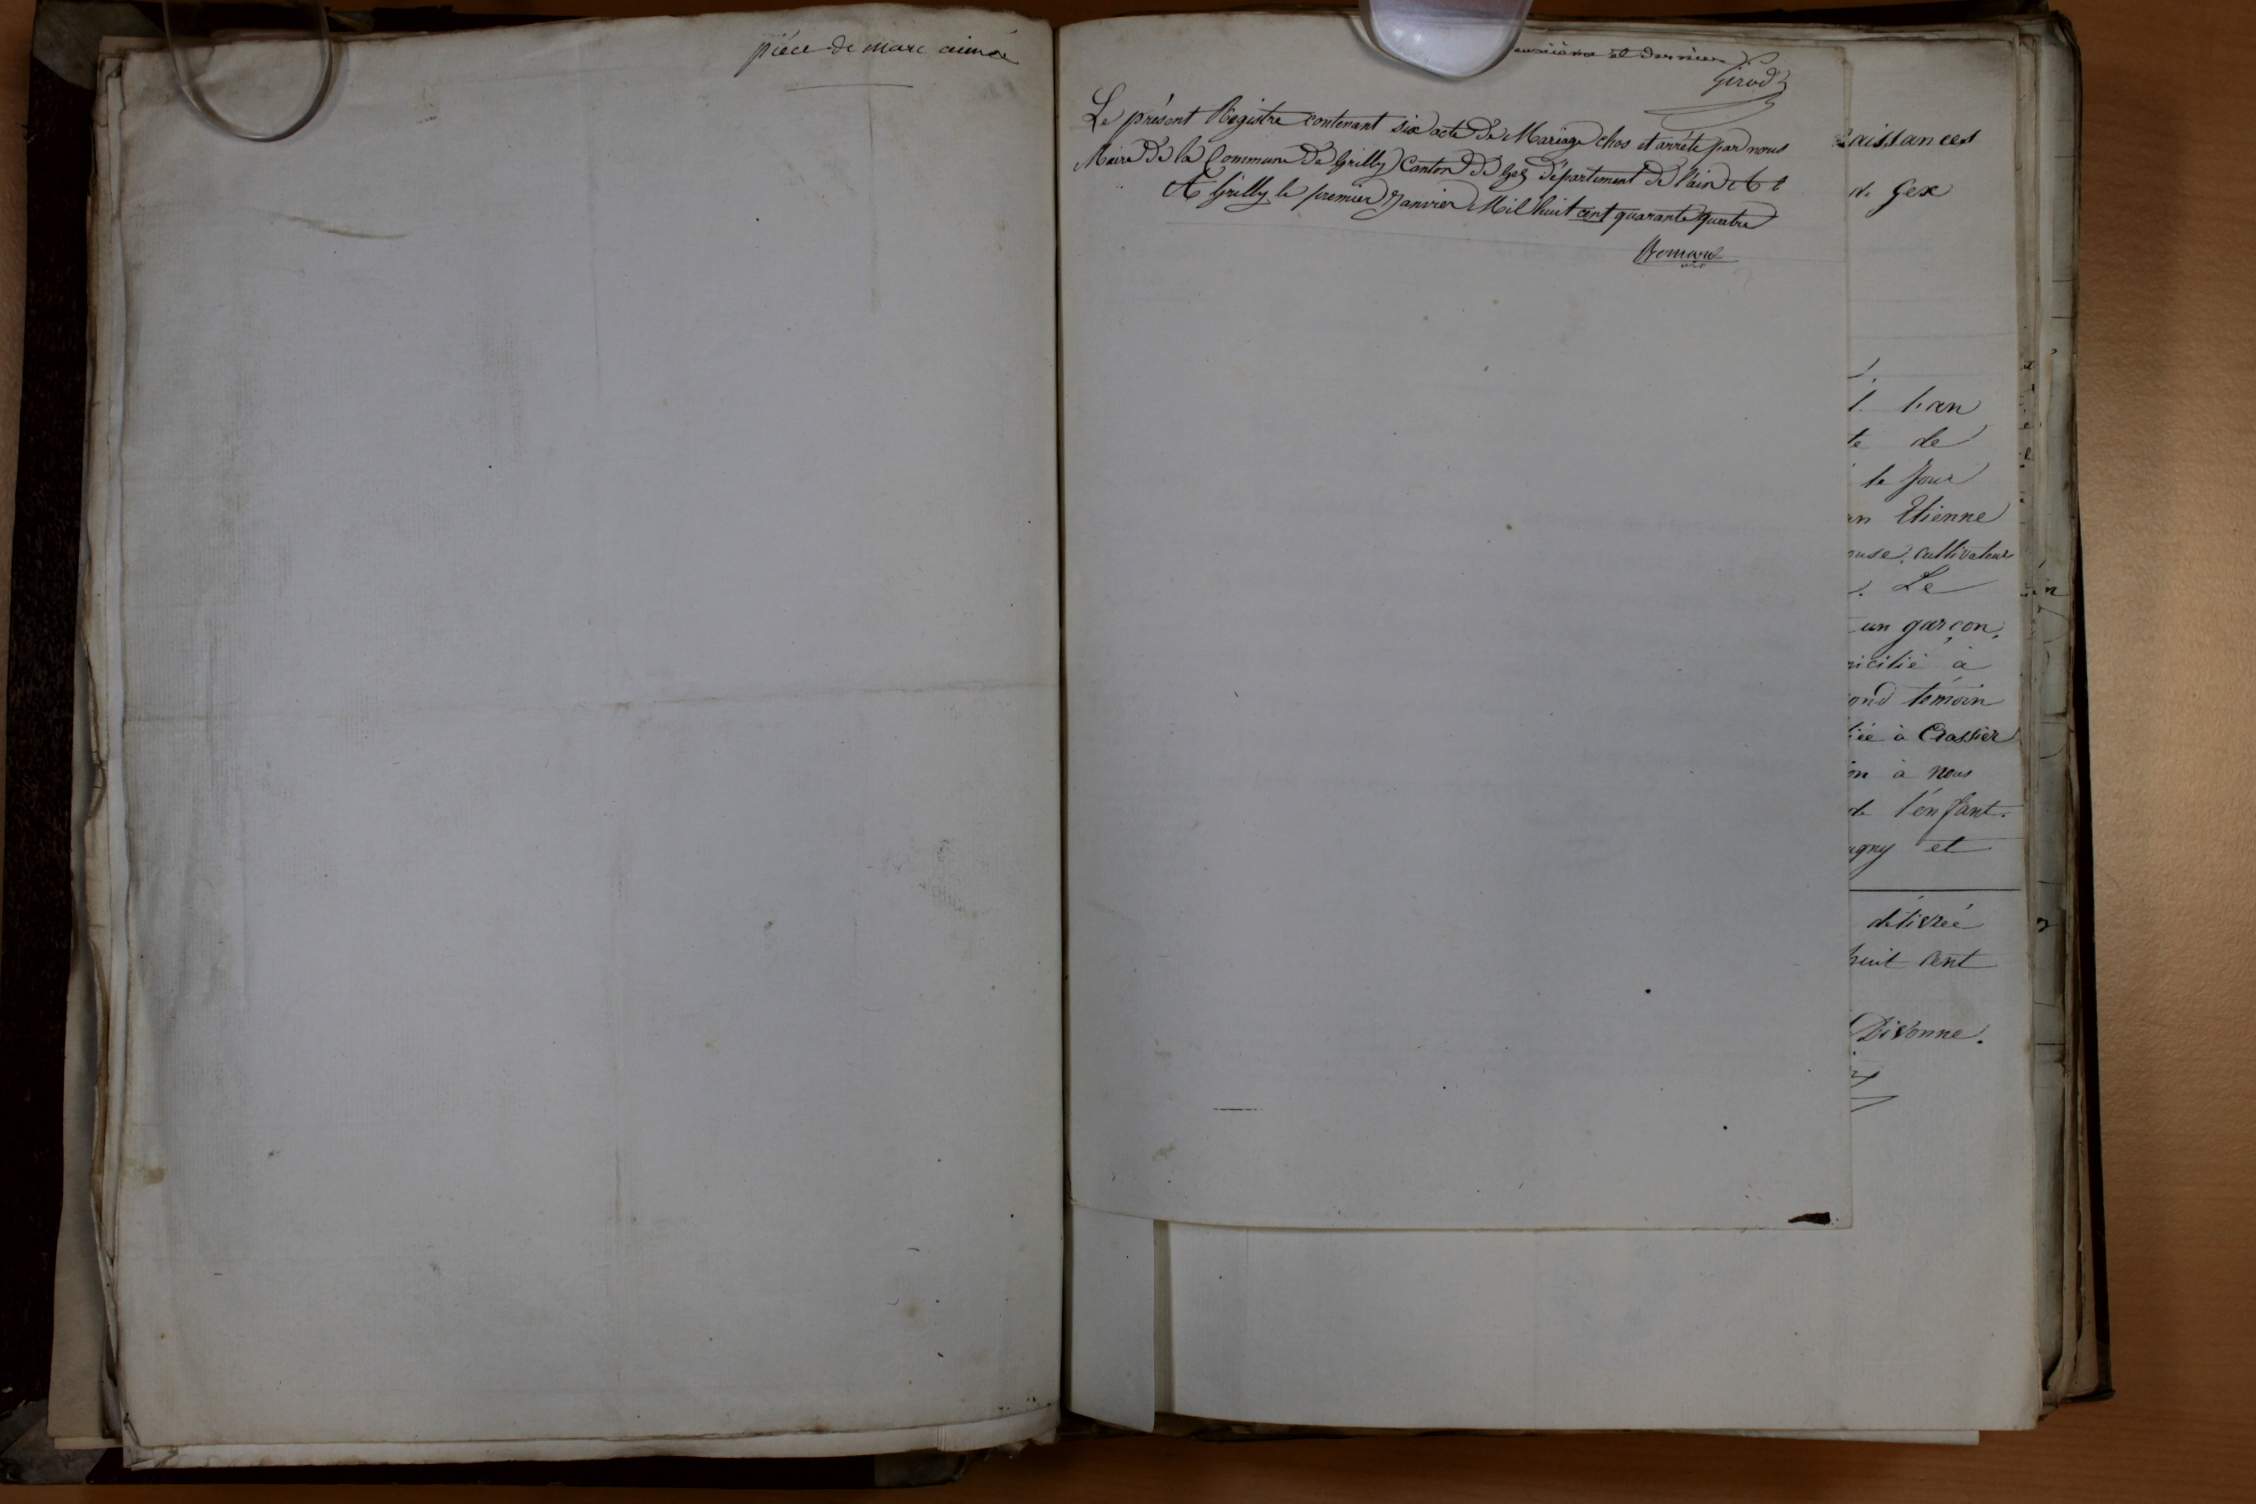 pièce de marc aimé
et dernier
Girod
Le présent Registre contenant six acte de Mariage clos et arrêté par nous
Maire de la Commune de Grilly Canton de Gex département de l'ain
A Grilly le premier Janvier Mil huit cent quarante quatre
aissances
de Gex
l'an
te de
le jour
an Etienne
ouse, cultivateur
Le
un garçon,
micilié à
ond témoin
liée à Crassier
on à nous
de l'énfant.
ugny et
délivrée
huit cent
Divonne.